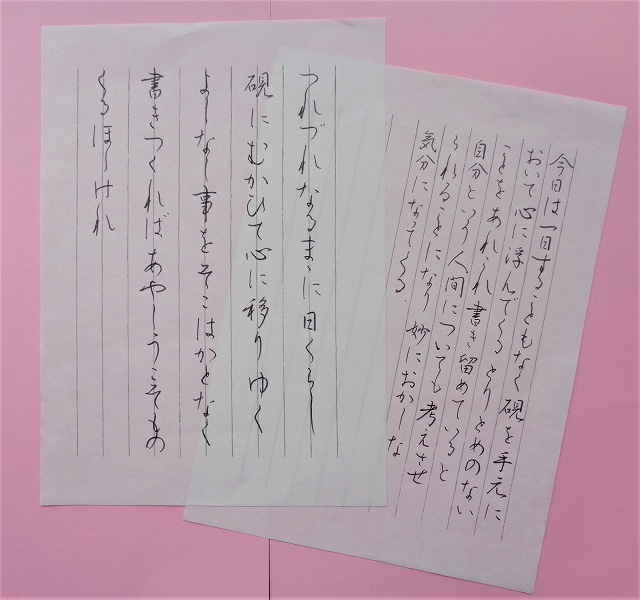 今日は一日することもなく硯を手元に
おいて心に浮んでくるとりとめのない
ことをあれこれ書き留めていると
自分という人間についても考えさせ
られることになり妙におかしな
気分になってくる
つれづれなるまゝに日くらし
硯にむかひて心に移りゆく
よしなし事をそこはかとなく
書きつくればあやしうこそもの
くるほしけれ